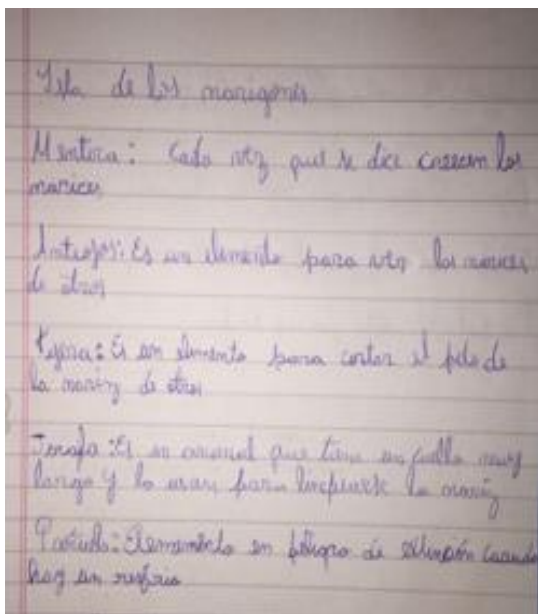 Isla de los narigones
Mentira: Cada vez que se dice crecen las
narices
Anteojos: Es un elemento para ver las narices
de otros
Tijera: Es un elemento para cortar el pelo de
la nariz de otros
Jirafa: Es un animal que tiene un cuello muy
largo y lo usan para limpiarse la nariz
Pañuelo: Elemento en peligro de extinsión cuando
hay un resfrio